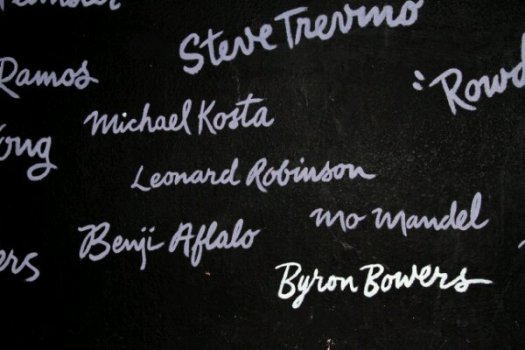 Steve Trevino
Ramos
"Rowd
Michael Kosta
ong
Leonard Robinson
Mo Mandel
Benji Aflalo
ers
Byron Bowers